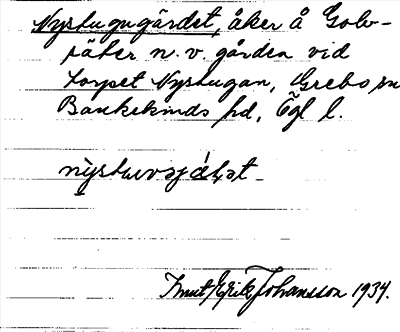 Nystugugärdet, åker å Golv-
säter n.v. gården vid
torpet Nystugan, Grebo sn
Bankekinds hd, Ögl l.
Knut Erik Johansson 1934.